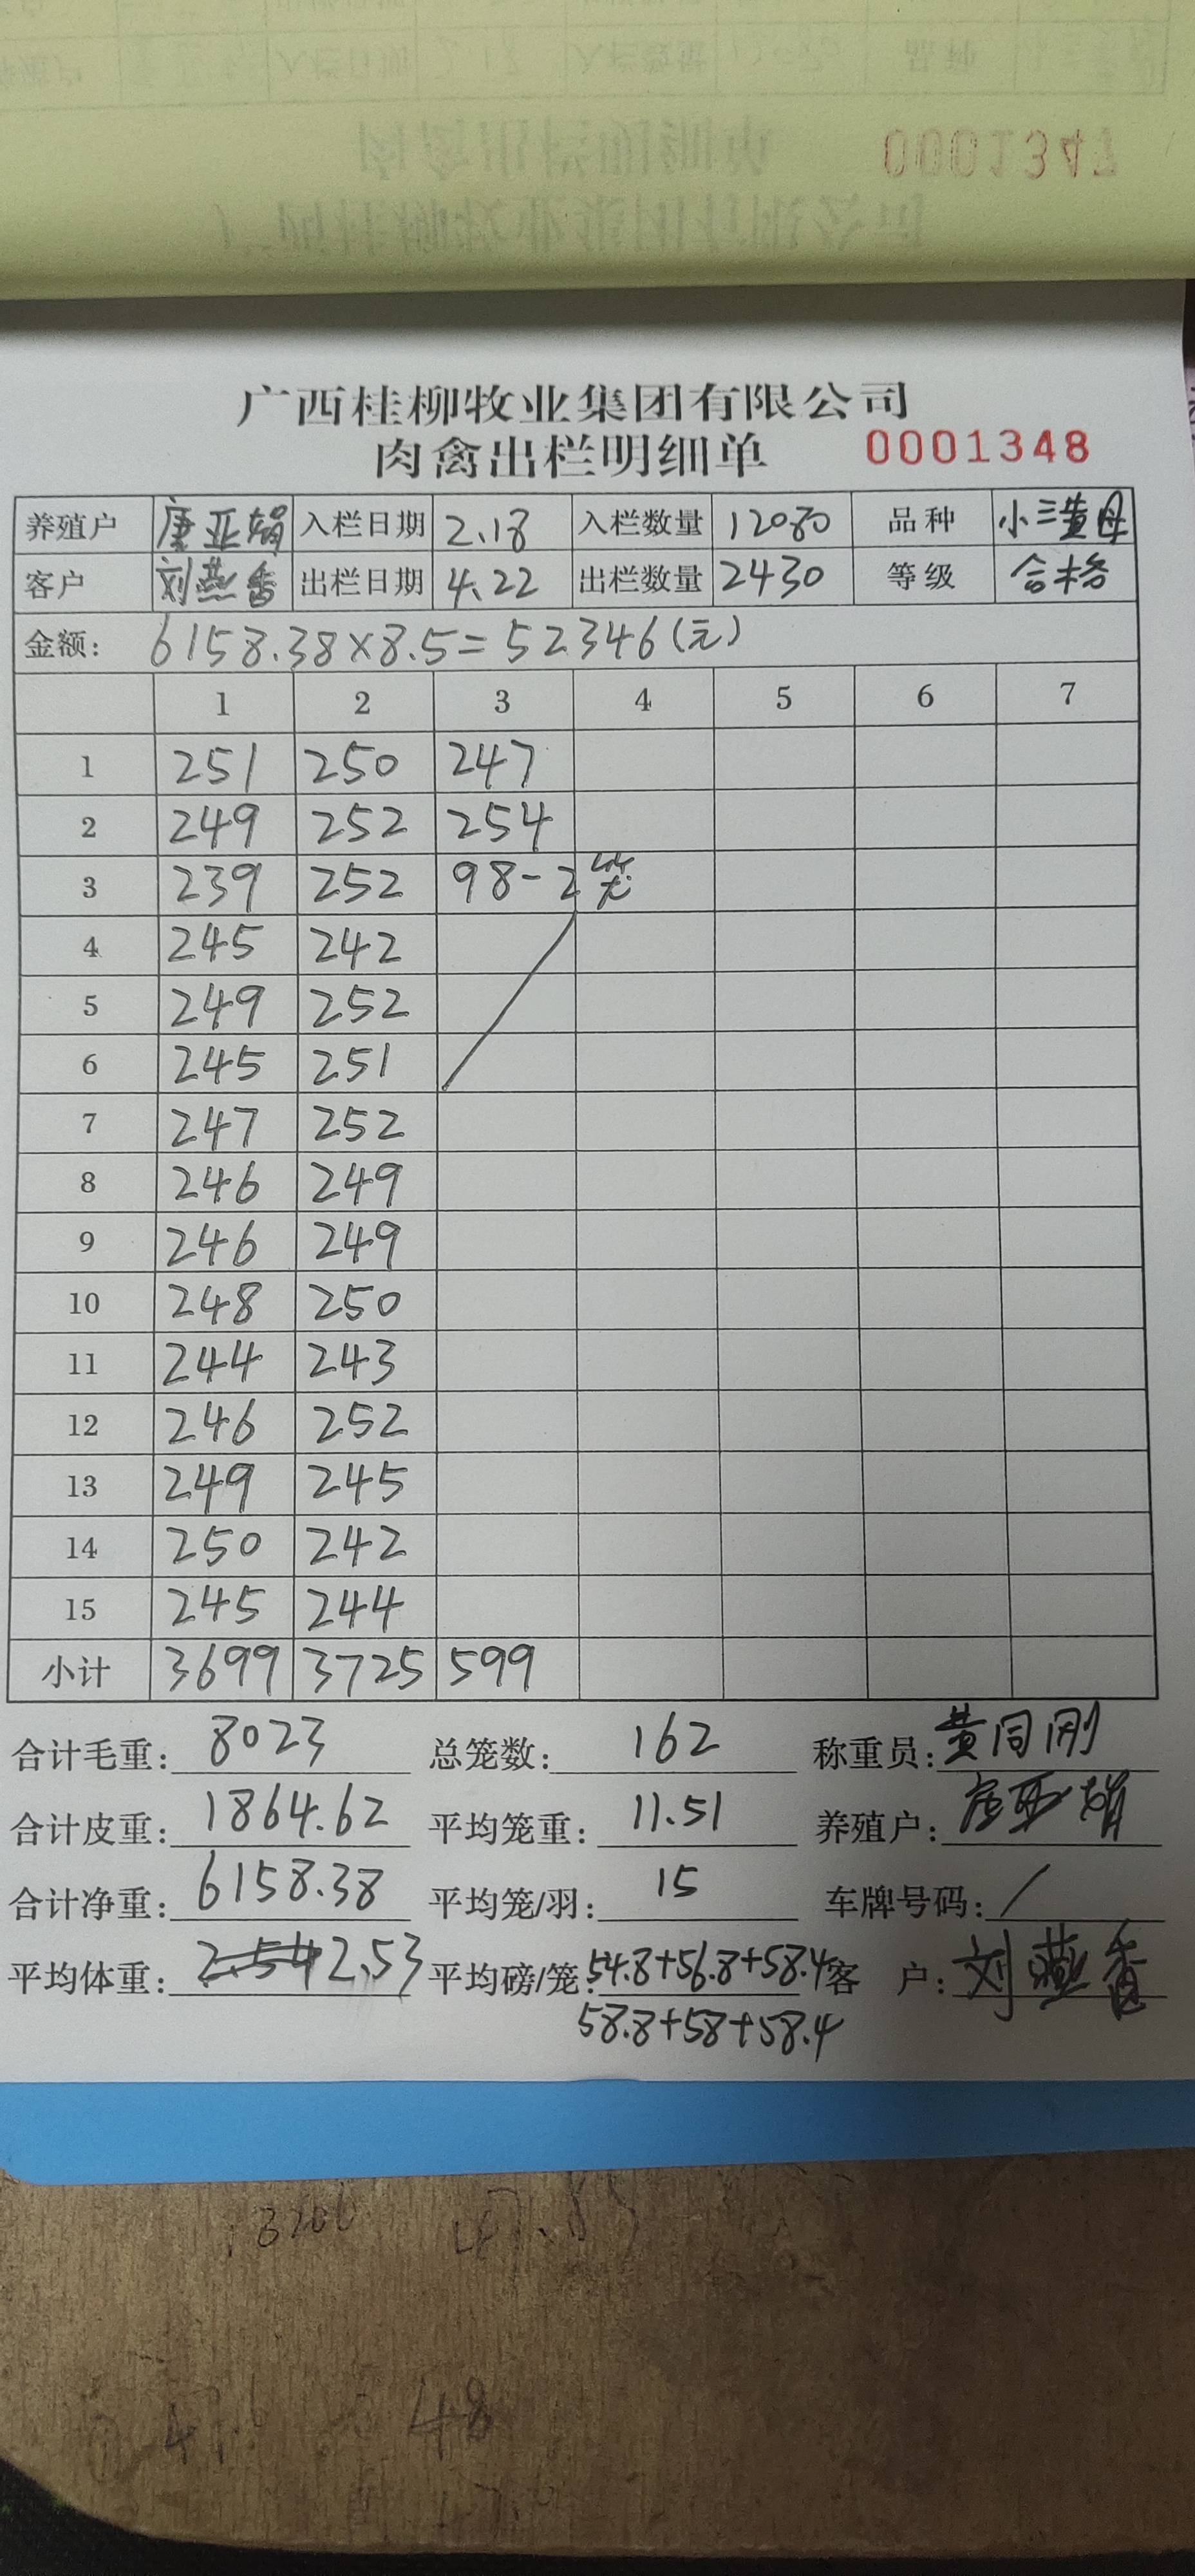 0001347
广西桂柳牧业集团有限公司
肉禽出栏明细单 0001348
养殖户 唐亚娟 入栏日期 2.18 入栏数量 12080 品种 小三黄母
客户 刘燕香 出栏日期 4.22 出栏数量 2430 等级 合格
金额: 6158.38×8.5=52346(元)
1 2 3 4 5 6 7
1 251 250 247
2 249 252 254
3 239 252 98-2笼
4 245 242
5 249 252
6 245 251
7 247 252
8 246 249
9 246 249
10 248 250
11 244 243
12 246 252
13 249 245
14 250 242
15 245 244
小计 3699 3725 599
合计毛重: 8023 总笼数: 162 称重员: 黄同刚
合计皮重: 1864.62 平均笼重: 11.51 养殖户: 唐亚娟
合计净重: 6158.38 平均笼/羽: 15 车牌号码: /
平均体重: 2.54 2.53 平均磅/笼: 54.8+56.8+58.4 客 户: 刘燕香
58.8+58+58.4
48